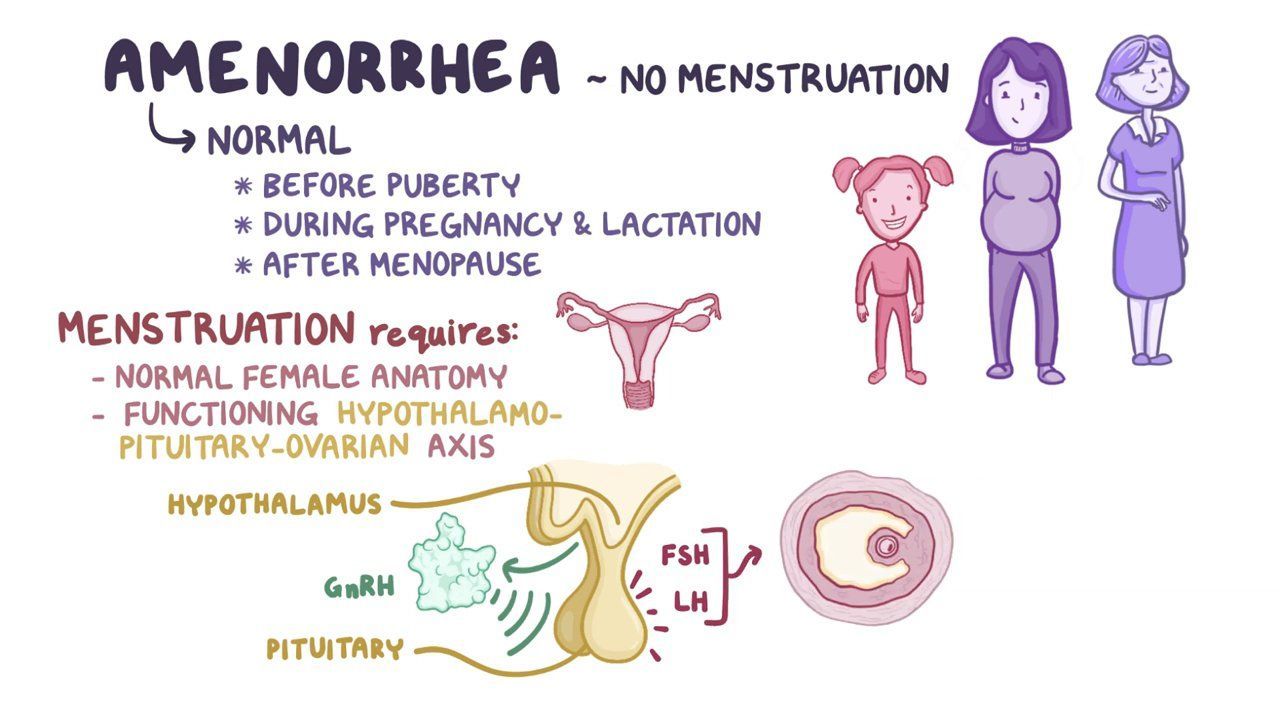 AMENORRHEA ~ NO MENSTRUATION
NORMAL
* BEFORE PUBERTY
* DURING PREGNANCY & LACTATION
* AFTER MENOPAUSE
MENSTRUATION requires:
- NORMAL FEMALE ANATOMY
- FUNCTIONING HYPOTHALAMO-
PITUITARY-OVARIAN AXIS
HYPOTHALAMUS
GnRH
PITUITARY
FSH
LH